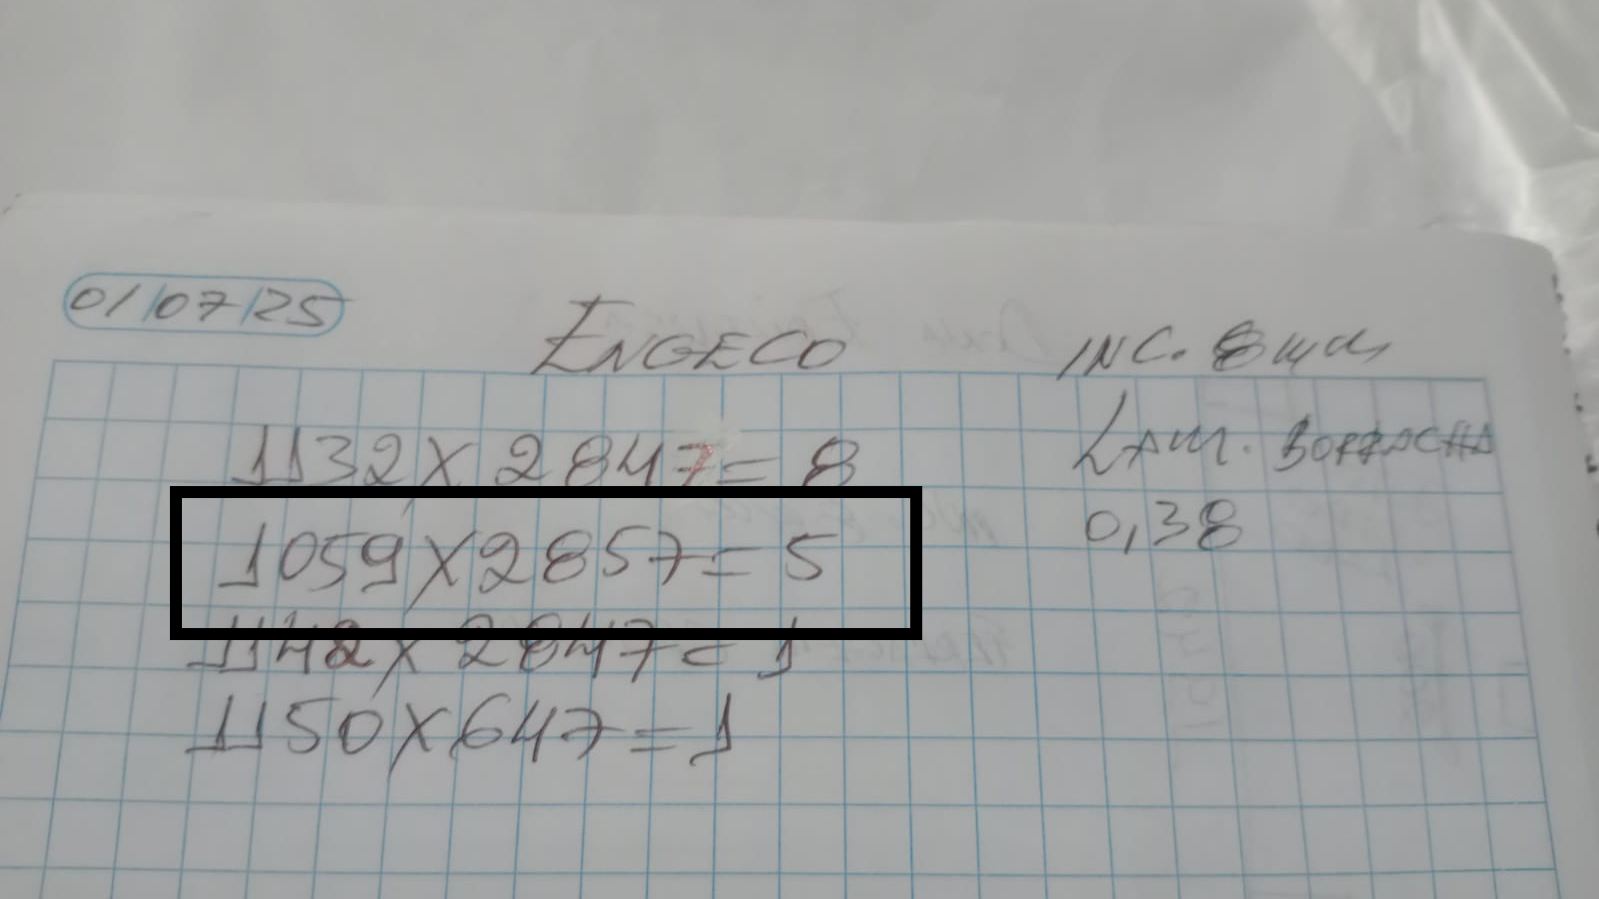 01/07/25
ENGECO
INC. 8mm
1132 X 2847 = 8
LAM. BORRACHA
1059 X 2857 = 5
0,38
1142 X 2847 = 1
1150 X 647 = 1